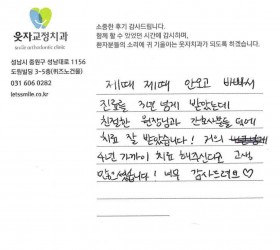 웃자교정치과
smile orthodontic clinic
성남시 중원구 성남대로 1156
도원빌딩 3-5층(퀴즈노건물)
031 606 0282
letssmile.co.kr
소중한 후기 감사드립니다.
함께 할 수 있었던 시간에 감사하며,
환자분들의 소리에 귀 기울이는 웃자치과가 되도록 하겠습니다.
제때 제때 안오고 바빠서
진료를 3년 넘게 받았는데
친절한 원장님과 간호사분들 덕에
치료 잘 받았습니다! 거의
4년 가까이 치료 해주신다고 고생
많으셨습니다! 너무 감사드려요♡